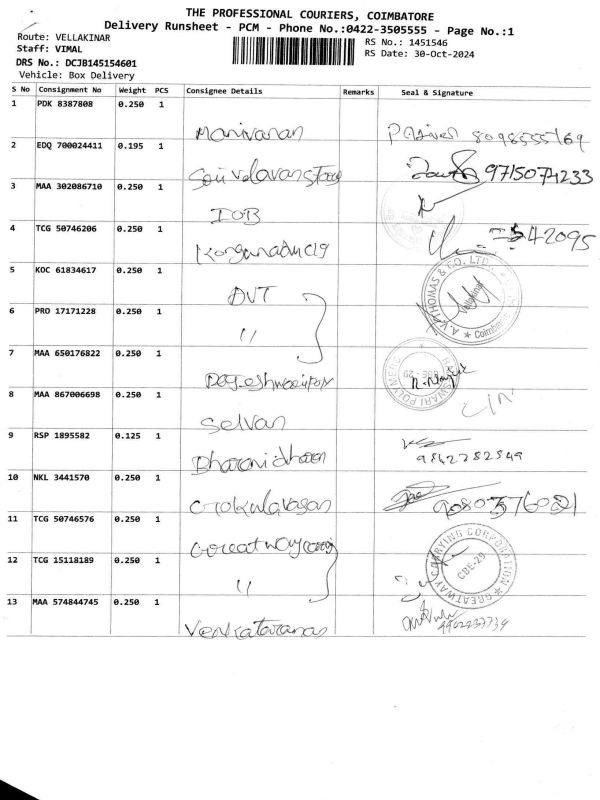 THE PROFESSIONAL COURIERS, COIMBATORE
Delivery Runsheet - PCM - Phone No.:0422-3505555 - Page No.:1
Route: VELLAKINAR
Staff: VIMAL
DRS No.: DCJB145154601
Vehicle: Box Delivery
RS No.: 1451546
RS Date: 30-Oct-2024
S No Consignment No Weight PCS Consignee Details Remarks Seal & Signature
1 PDK 8387808 0.250 1
Manivanan 8098555769
2 EDQ 700024411 0.195 1
9715074233
3 MAA 302086710 0.250 1
IOB
4 TCG 50746206 0.250 1
542095
5 KOC 61834617 0.250 1
AVT
A.V. THOMAS & CO. LTD. Vellakinar Coimbatore
6 PRO 17171228 0.250 1
"
7 MAA 650176822 0.250 1
POLYMERS CBE-29
8 MAA 867006698 0.250 1
Selvan
9 RSP 1895582 0.125 1
Dharanidharan
9842782549
10 NKL 3441570 0.250 1
Gokulavasan 9080376021
11 TCG 50746576 0.250 1
Greatway
GREATWAY CARRYING CORPORATION CBE-29
12 TCG 15118189 0.250 1
"
13 MAA 574844745 0.250 1
Venkataramas